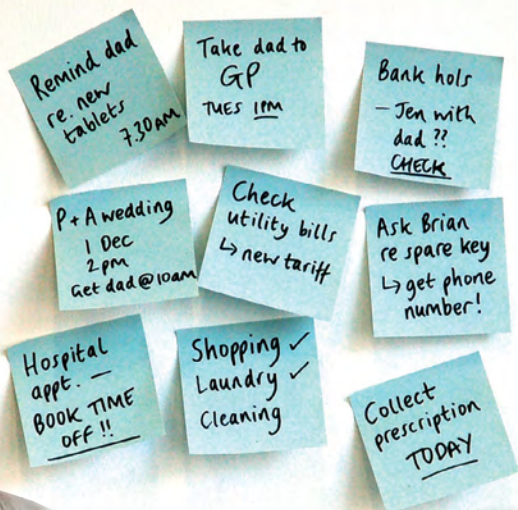 Remind dad
re. new
tablets
7.30AM
Take dad to
GP
TUES 1PM
Bank hols
- Jen with
dad ??
CHECK
P + A wedding
1 Dec
2pm
Get dad @ 10am
Check
utility bills
↳ new tariff
Ask Brian
re spare key
↳ get phone
number!
Hospital
appt. —
BOOK TIME
OFF !!
Shopping ✓
Laundry ✓
Cleaning
Collect
prescription
TODAY